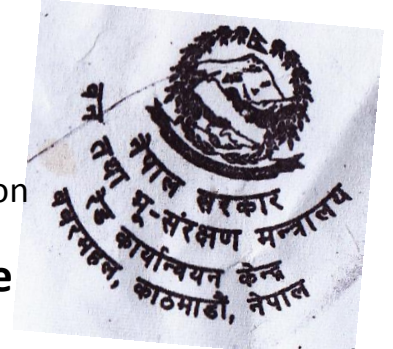 नेपाल सरकार
वन तथा भू-संरक्षण मन्त्रालय
रेड कार्यान्वयन केन्द्र
बबरमहल, काठमाडौं, नेपाल
on
e